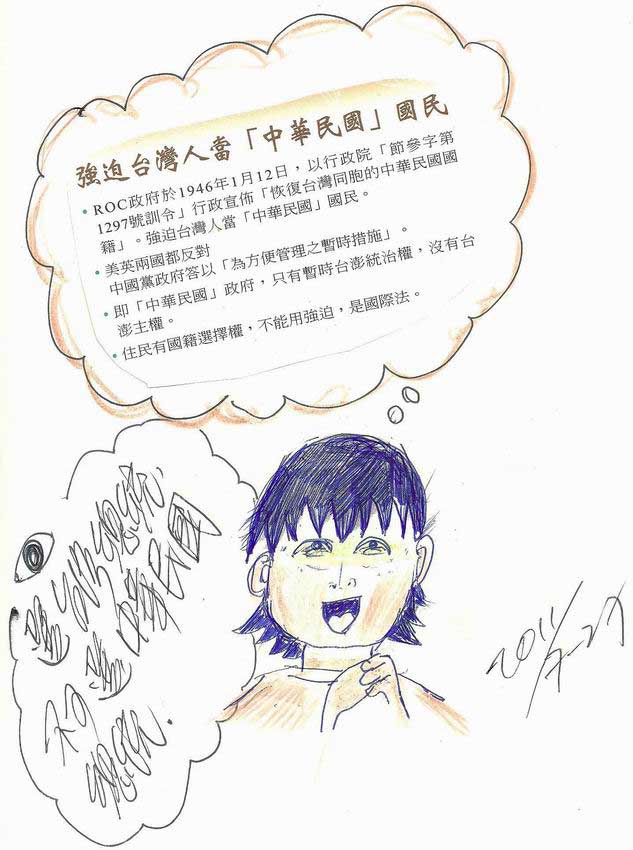 強迫台灣人當「中華民國」國民
• ROC政府於1946年1月12日，以行政院「節參字第
1297號訓令」行政宣佈「恢復台灣同胞的中華民國國
籍」。強迫台灣人當「中華民國」國民。
• 美英兩國都反對
中國黨政府答以「為方便管理之暫時措施」。
• 即「中華民國」政府，只有暫時台澎統治權，沒有台
澎主權。
• 住民有國籍選擇權，不能用強迫，是國際法。
中華民國
2011